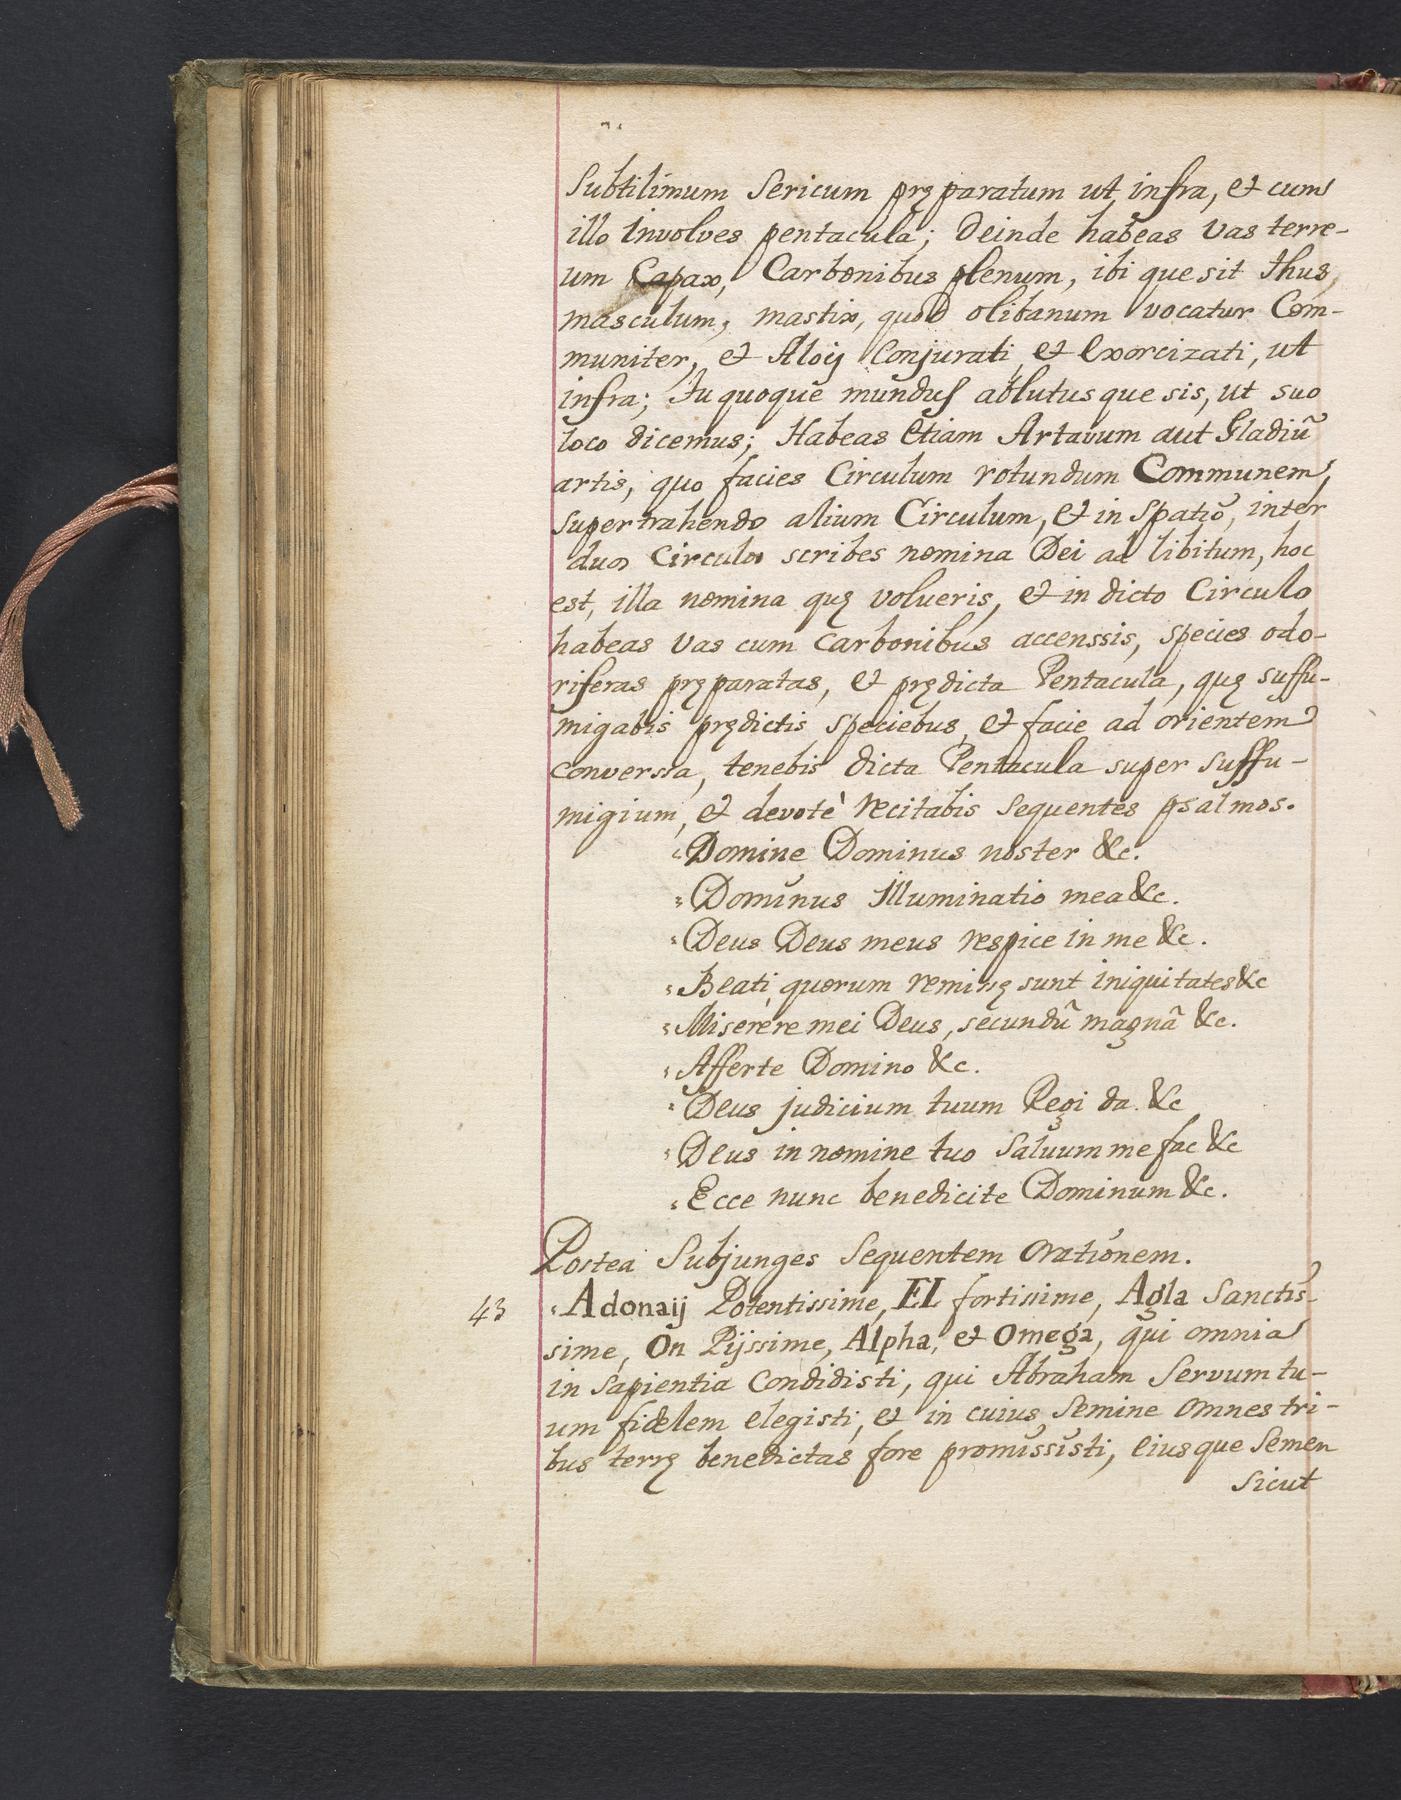 Subtilimum Sericum pręparatum ut infra, et cum
illo involves pentacula; Deinde habeas Vas terre-
um Capax, Carbonibus plenum, ibi que sit thus
masculum, mastix, quod olibanum vocatur Com-
muniter, et Aloij Conjurati, et exorcizati, ut
infra; Tu quoque mundus ablutus que sis, ut suo
loco dicemus; Habeas Etiam Artavum aut Gladiũ
artis, quo facies Circulum rotundum Communem,
supertrahendo alium Circulum, et in Spatio, inter
duos Circulos scribes nomina Dei ad libitum, hoc
est, illa nomina quę volueris, et in dicto Circulo
habeas Vas cum carbonibus accenssis, species odo-
riferas pręparatas, et prędicta Pentacula, quę suffu-
migabis prędictis speciebus, et facie ad orientem
conversa, tenebis dicta Pentacula super suffu-
migium, et devotè recitabis sequentes psalmos.
Domine Dominus noster &c.
Dominus illuminatio mea &c.
Deus Deus meus respice in me &c.
Beati quorum remissę sunt iniquitates &c
Miserere mei Deus, secundũ magnã &c.
Afferte Domino &c.
Deus judicium tuum Regi da &c
Deus in nomine tuo Saluum me fac &c
Ecce nunc benedicite Dominum &c.
Postea Subjunges Sequentem Orationem.
43 Adonaij Potentissime, EL fortissime, Agla Sanctis-
sime, On Pijssime, Alpha, et Omega, qui omnia
in Sapientia Condidisti, qui Abraham Servum tu-
um fidelem elegisti, et in cuius Semine Omnes tri-
bus terrę benedictas fore promissisti, eiusque Semen
Sicut